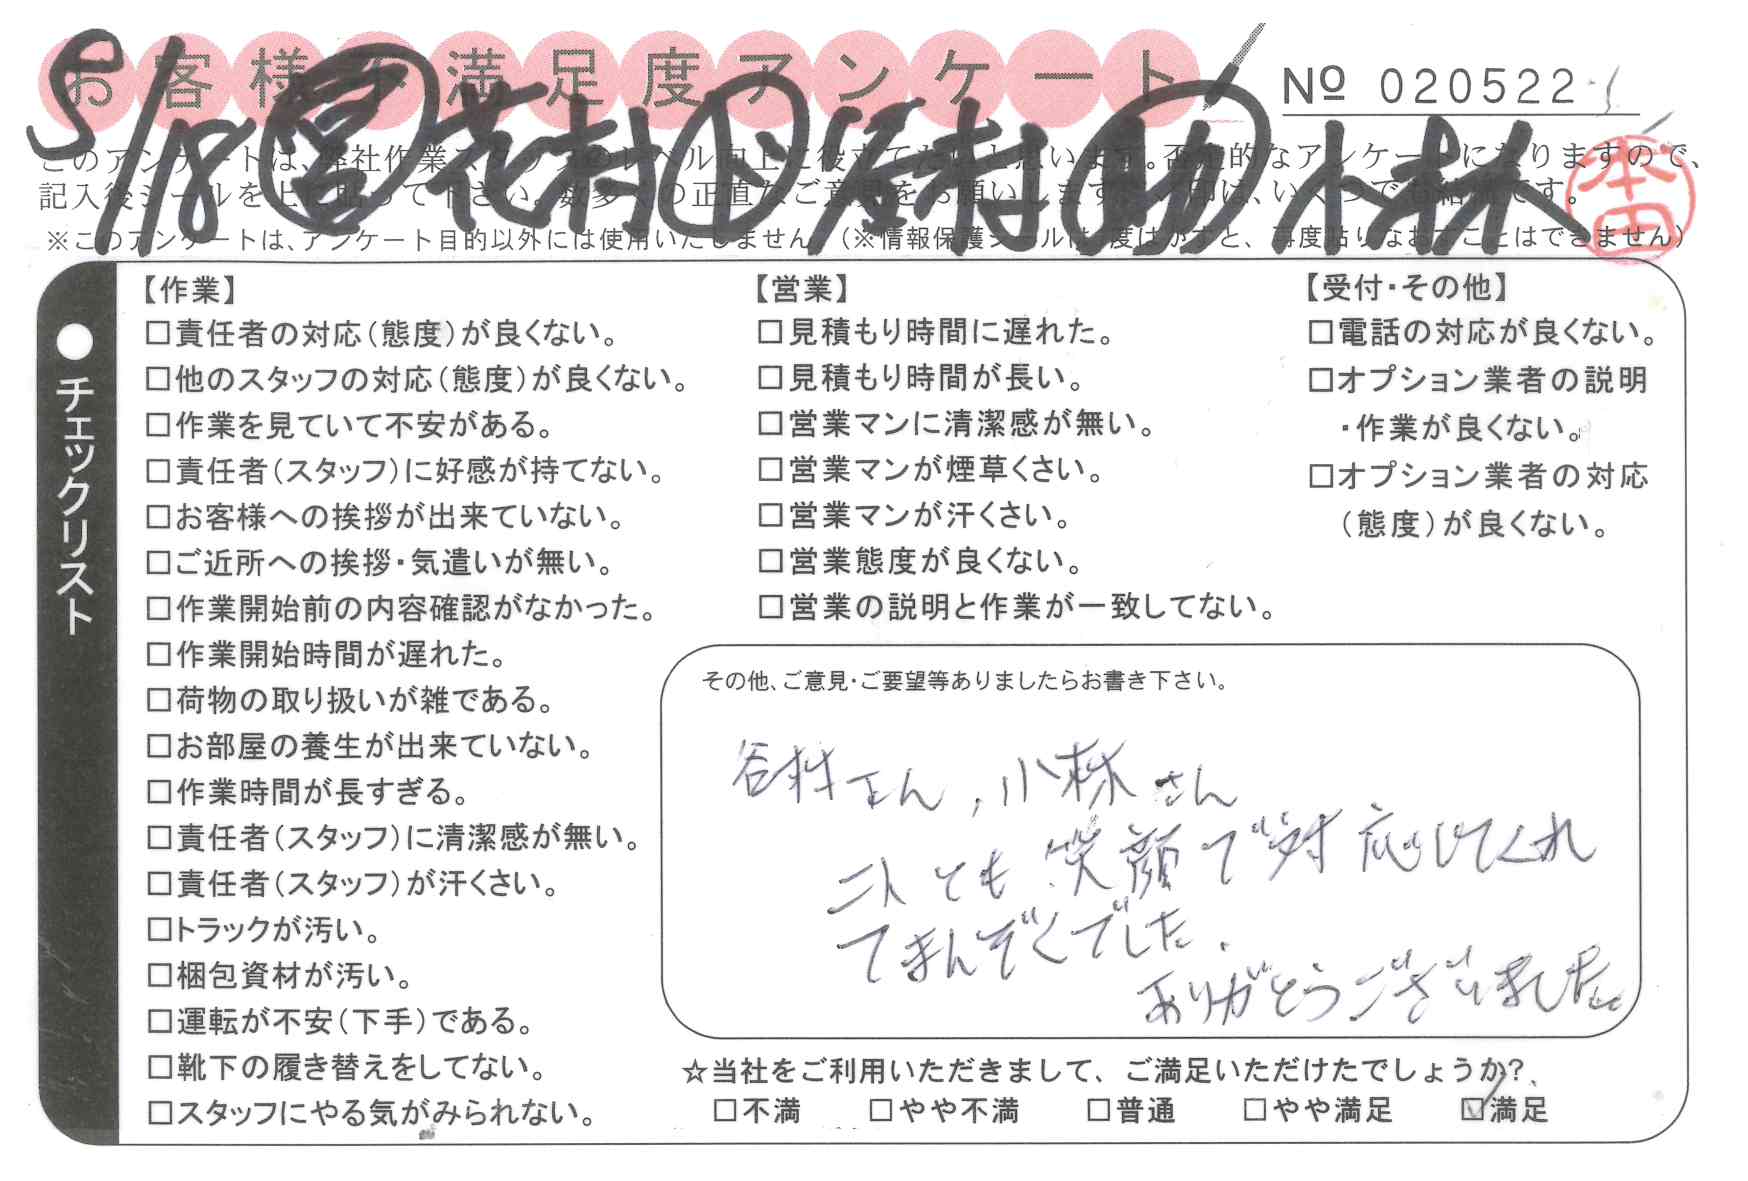 お客様不満足度アンケート
№ 020522
5/18 営 花村 ド 谷村 助 小林
このアンケートは、弊社作業スタッフのレベル向上に役立てたいと思います。否定的なアンケートになりますので、
記入後シールを上に貼って下さい。数多くの正直なご意見をお願いします。✓印は、いくつでも結構です。
※このアンケートは、アンケート目的以外には使用いたしません。(※情報保護シールは1度はがすと、再度貼りなおすことはできません)
本田
●チェックリスト
【作業】
□責任者の対応(態度)が良くない。
□他のスタッフの対応(態度)が良くない。
□作業を見ていて不安がある。
□責任者(スタッフ)に好感が持てない。
□お客様への挨拶が出来ていない。
□ご近所への挨拶・気遣いが無い。
□作業開始前の内容確認がなかった。
□作業開始時間が遅れた。
□荷物の取り扱いが雑である。
□お部屋の養生が出来ていない。
□作業時間が長すぎる。
□責任者(スタッフ)に清潔感が無い。
□責任者(スタッフ)が汗くさい。
□トラックが汚い。
□梱包資材が汚い。
□運転が不安(下手)である。
□靴下の履き替えをしてない。
□スタッフにやる気がみられない。
【営業】
□見積もり時間に遅れた。
□見積もり時間が長い。
□営業マンに清潔感が無い。
□営業マンが煙草くさい。
□営業マンが汗くさい。
□営業態度が良くない。
□営業の説明と作業が一致してない。
【受付・その他】
□電話の対応が良くない。
□オプション業者の説明
・作業が良くない。
□オプション業者の対応
(態度)が良くない。
その他、ご意見・ご要望等ありましたらお書き下さい。
谷村さん,小林さん
二人とも笑顔で対応してくれ
てまんぞくでした.
ありがとうございました。
☆当社をご利用いただきまして、ご満足いただけたでしょうか?
□不満 □やや不満 □普通 □やや満足 ☑満足